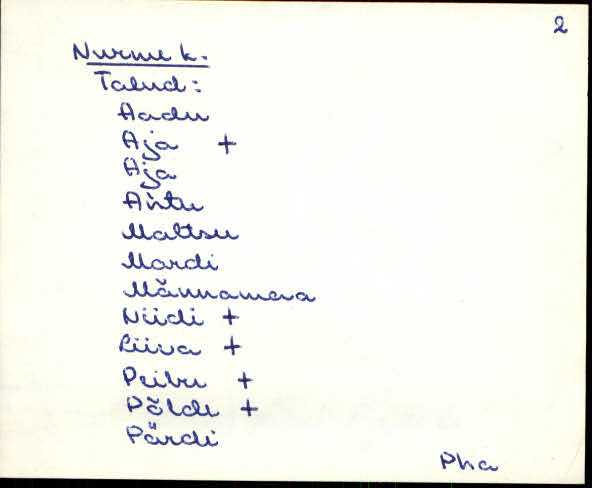 2
Nurme k.
Talud:
Aadu
Aja +
Aja
Antu
Maltsu
Mardi
Männamaa
Niidi +
Liiva +
Põldi +
Pärdi
Pha